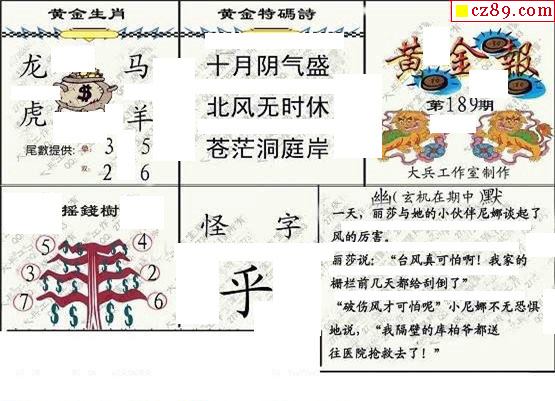 cz89.com
黄金生肖
龙 马
虎 羊
$
尾數提供: 单: 3 5
双: 2 6
黄金特碼詩
十月阴气盛
北风无时休
苍茫洞庭岸
黄金報
第189期
大兵工作室制作
摇錢樹
5 4
3 2
7 6
怪 字
乎
幽(玄机在期中)默
一天，丽莎与她的小伙伴尼娜谈起了
风的厉害。
丽莎说：“台风真可怕啊！我家的
栅栏前几天都给刮倒了”
“破伤风才可怕呢”小尼娜不无恐惧
地说，“我隔壁的库柏爷都送
往医院抢救去了！”